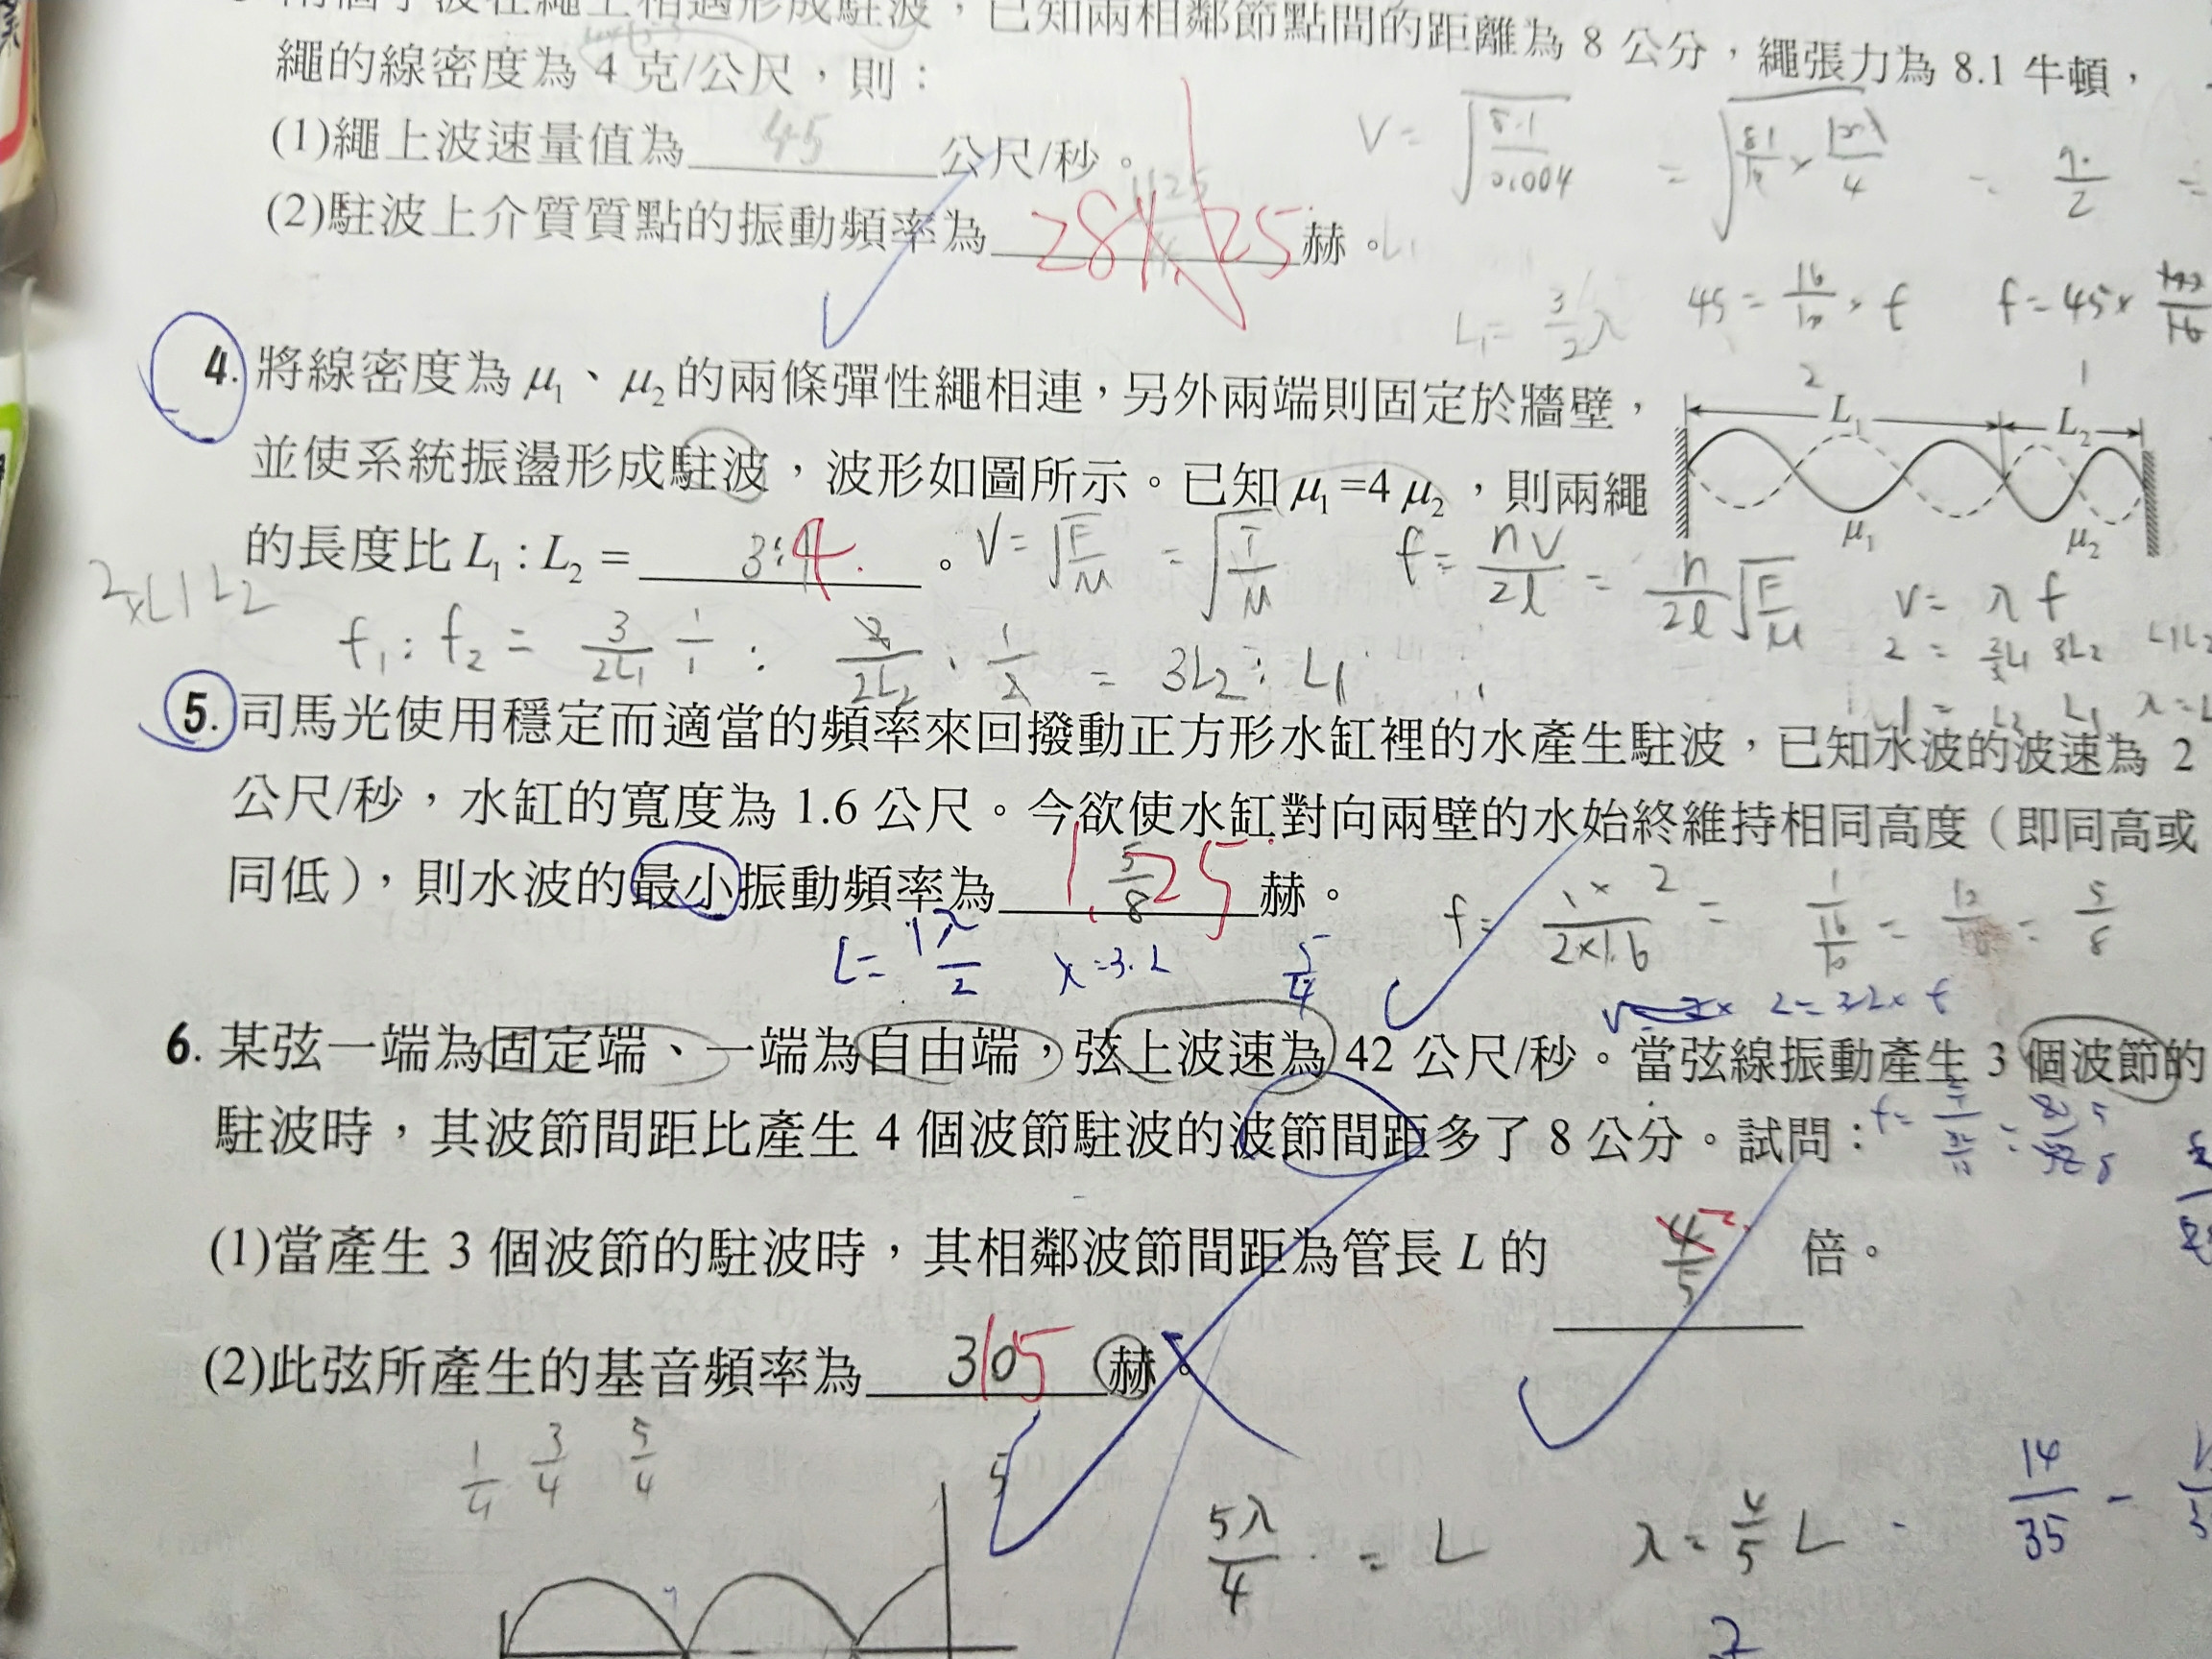 兩個子波在繩上相遇形成駐波，已知兩相鄰節點間的距離為 8 公分，繩張力為 8.1 牛頓，
繩的線密度為 4 克/公尺，則：
(1)繩上波速量值為 45 公尺/秒。
V= √8.1/0.004 = √81/10 × /4 =
(2)駐波上介質質點的振動頻率為 281.25 赫。
L₁= 3/2 λ 45 = 16/ × f f = 45×
4. 將線密度為 μ₁、μ₂ 的兩條彈性繩相連，另外兩端則固定於牆壁，
並使系統振盪形成駐波，波形如圖所示。已知 μ₁=4 μ₂，則兩繩
的長度比 L₁ : L₂ = 3:4 。
2 1
L₁ L₂
μ₁ μ₂
V= √F/μ = √T/μ f= nv/2l = n/2l √F/μ
V= λf
f₁ : f₂ = 3/2L₁ 1/1 : 2L₂ · 1/2 = 3L₂ : L₁
5. 司馬光使用穩定而適當的頻率來回撥動正方形水缸裡的水產生駐波，已知水波的波速為 2
公尺/秒，水缸的寬度為 1.6 公尺。今欲使水缸對向兩壁的水始終維持相同高度（即同高或
同低），則水波的最小振動頻率為 5/8 1.25 赫。
f= 1×2/2×1.6 = 1/16/10 = 10/16 = 5/8
L= 1λ/2 λ=3.2 5/4
2=3.2× f
6. 某弦一端為固定端、一端為自由端，弦上波速為 42 公尺/秒。當弦線振動產生 3 個波節的
駐波時，其波節間距比產生 4 個波節駐波的波節間距多了 8 公分。試問：
(1)當產生 3 個波節的駐波時，其相鄰波節間距為管長 L 的 4/5 2 倍。
(2)此弦所產生的基音頻率為 30 15 赫。
1/4 3/4 5/4
5λ/4 = L λ= 4/5 L
14/35 -